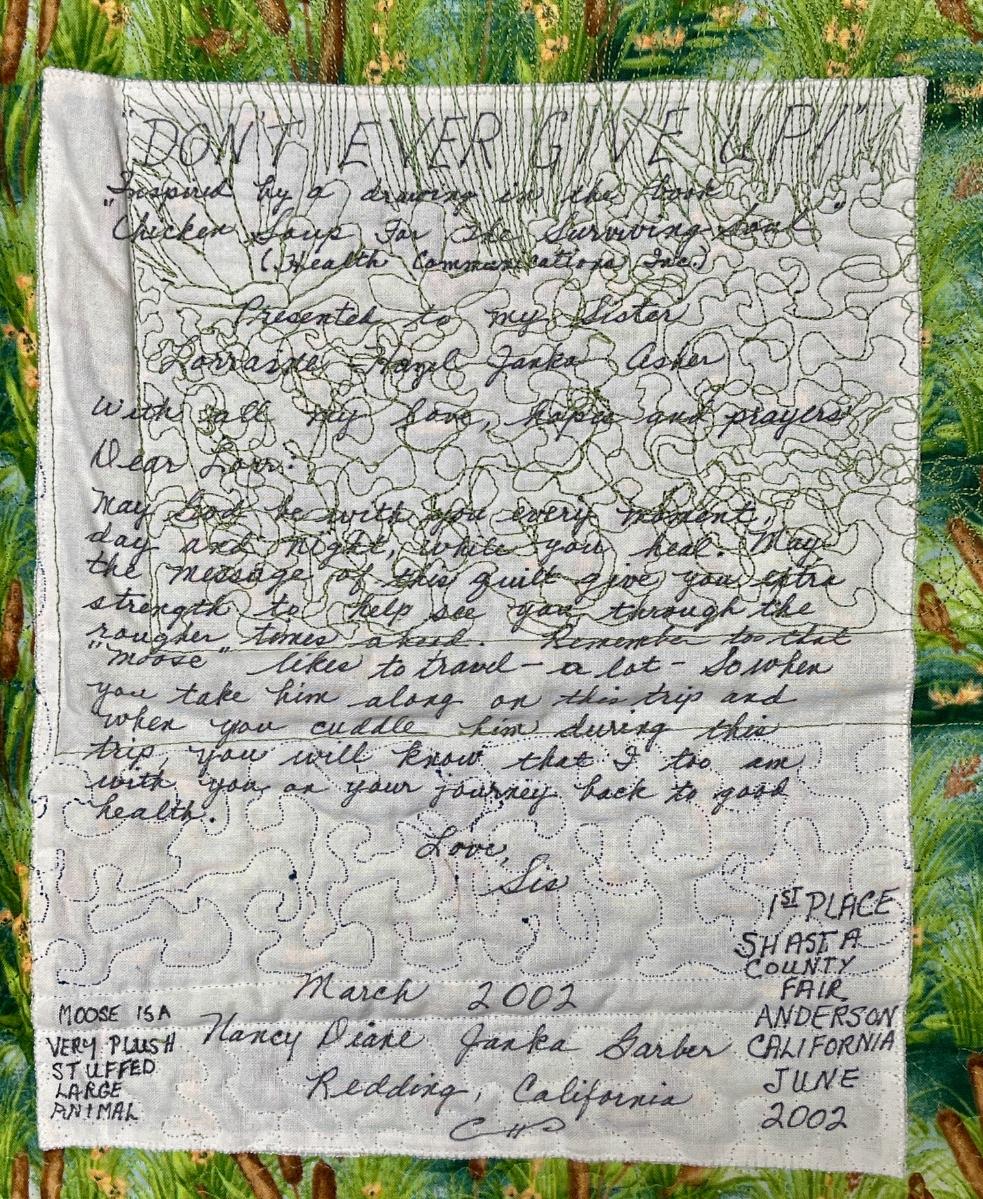 "DON'T EVER GIVE UP!"
"Inspired by a drawing in the book
"Chicken Soup For The Surviving Soul"
(Health Communications Inc.)
Presented to my Sister
Lorraine Hazel Janka Asher
With all my love, hopes and prayers,
Dear Lorr:
May God be with you every moment,
day and night, while you heal. May
the message of this quilt give you extra
strength to help see you through the
rougher times ahead. Remember too that
"Moose" likes to travel - a lot - So when
you take him along on this trip and
when you cuddle him during this
trip, you will know that I too am
with you on your journey back to good
health.
Love,
Sis
1ST PLACE
SHASTA
COUNTY
FAIR
ANDERSON
CALIFORNIA
JUNE
2002
March 2002
Nancy Diane Janka Garber
Redding, California
MOOSE IS A
VERY PLUSH
STUFFED
LARGE
ANIMAL